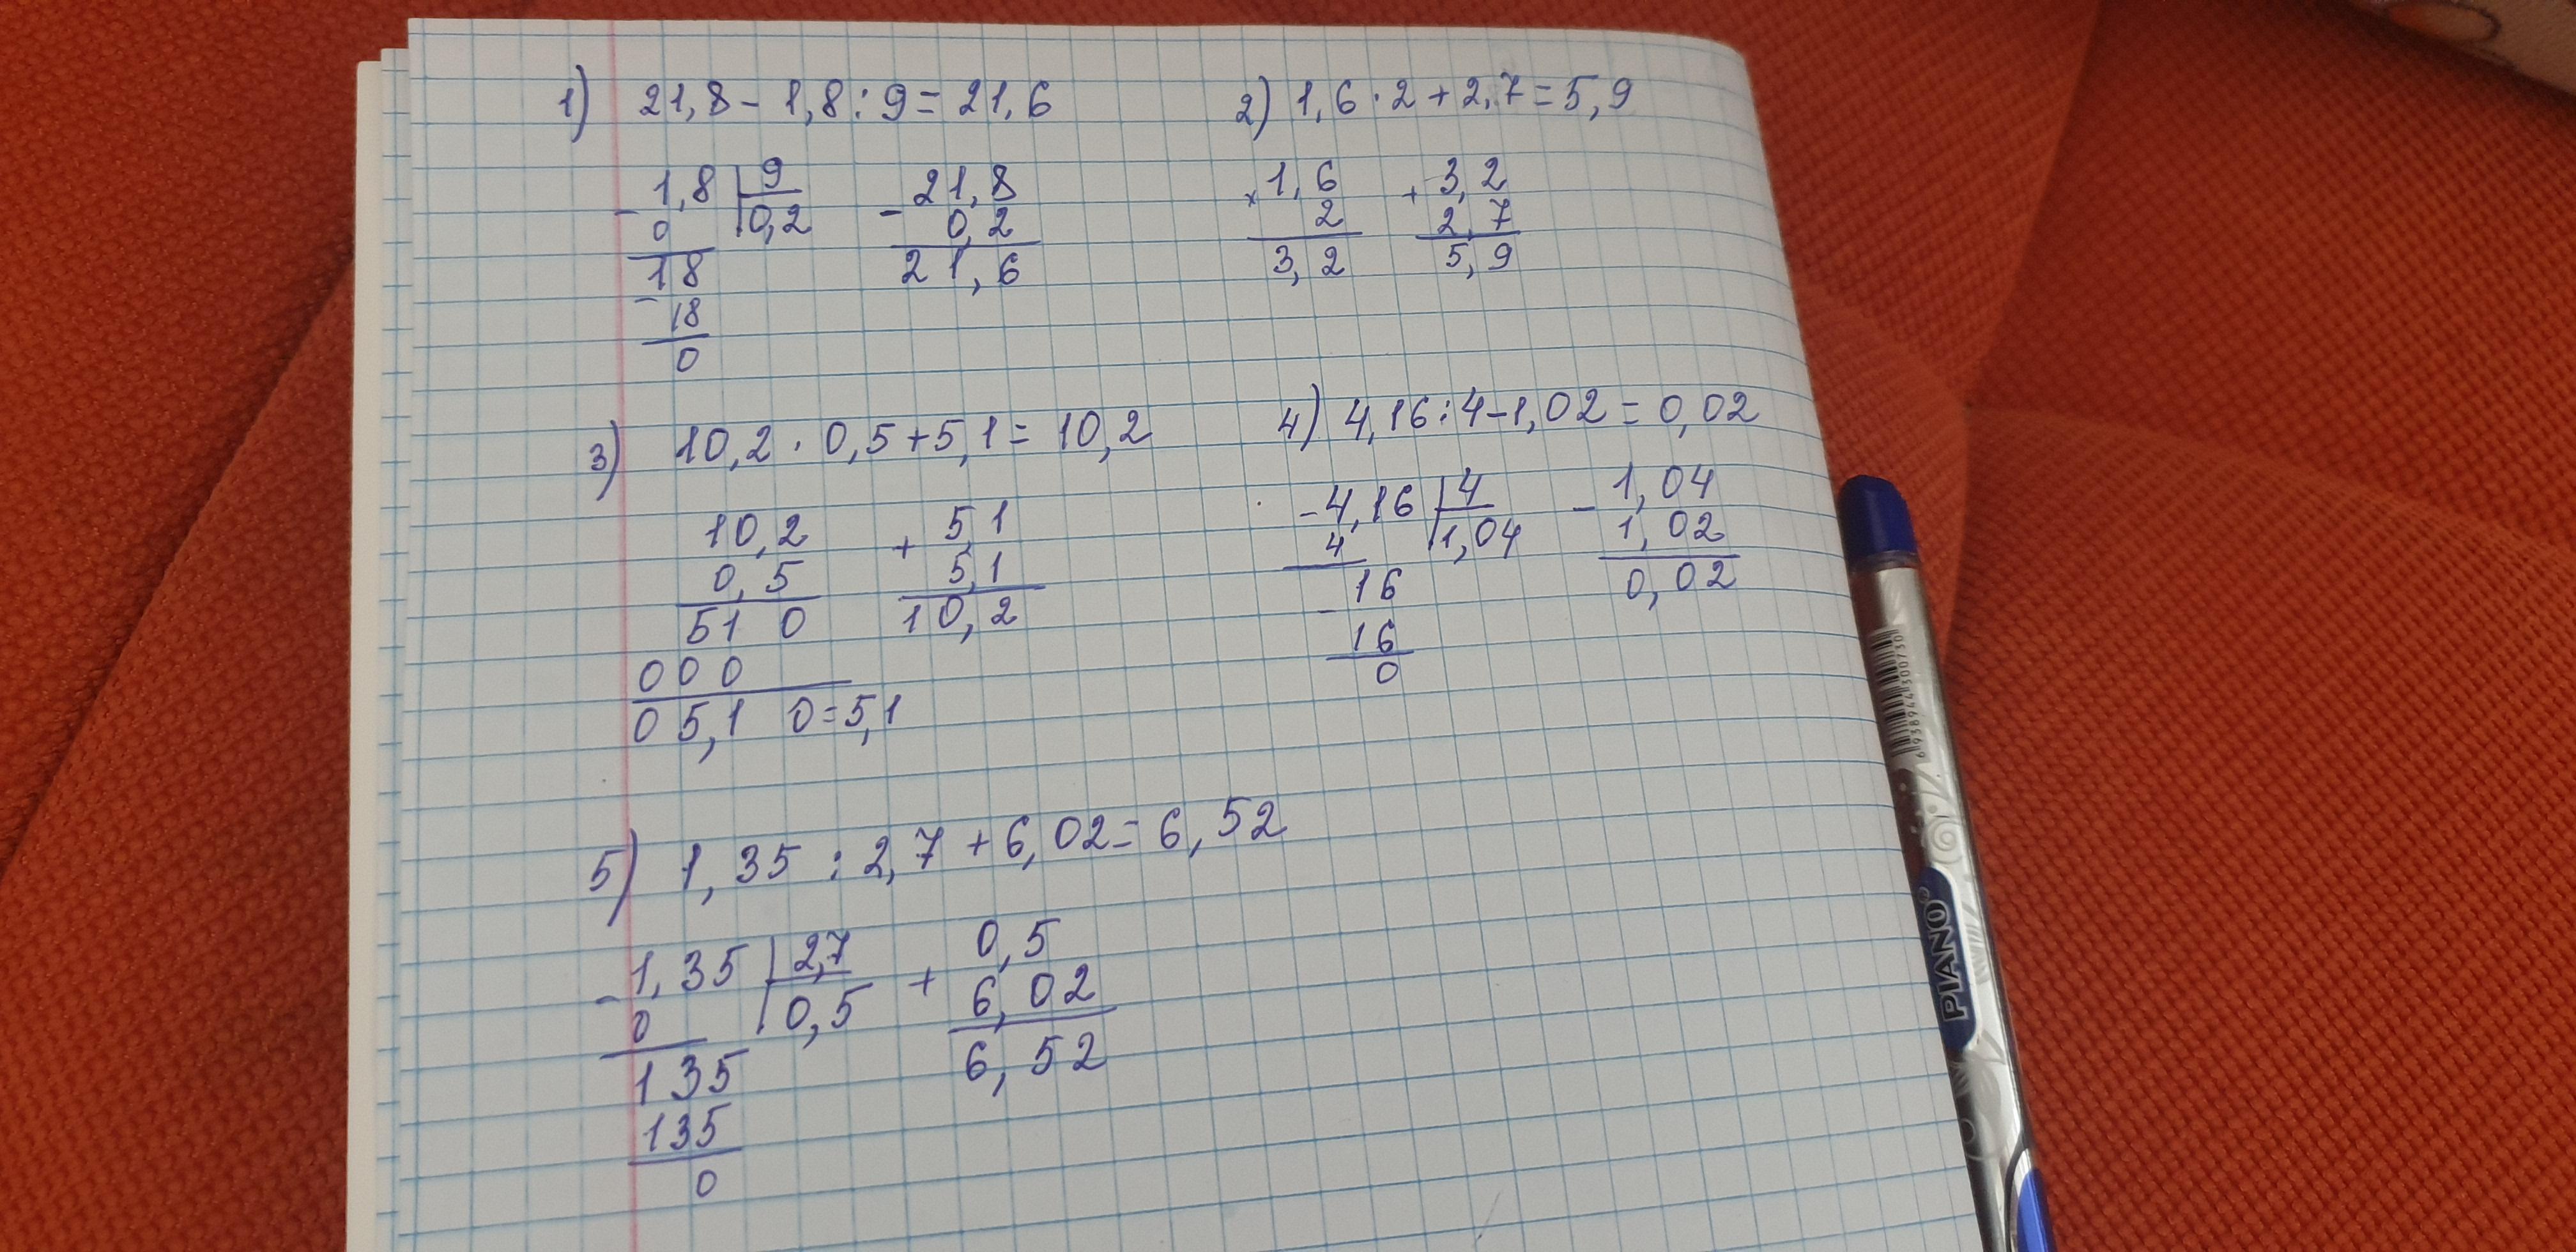 1) 21,8 - 1,8 : 9 = 21,6
- 1,8 | 9
0 | 0,2
18
- 18
0
- 21,8
0,2
21,6
2) 1,6 · 2 + 2,7 = 5,9
× 1,6
2
3,2
+ 3,2
2,7
5,9
3) 10,2 · 0,5 + 5,1 = 10,2
10,2
0,5
51 0
000
05,1 0 = 5,1
+ 5,1
5,1
10,2
4) 4,16 : 4 - 1,02 = 0,02
- 4,16 | 4
4 | 1,04
16
- 16
0
- 1,04
1,02
0,02
5) 1,35 : 2,7 + 6,02 = 6,52
- 1,35 | 2,7
0 | 0,5
135
135
0
+ 0,5
6,02
6,52
6938944300730
PIANO